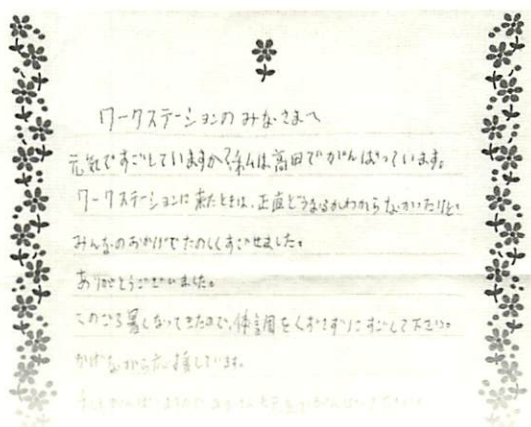 ワークステーションのみなさまへ
元気ですごしていますか?私は高田でがんばっています。
ワークステーションに来たときは、正直どうなるかわからなかったけど、
みんなのおかげでたのしくすごせました。
ありがとうございました。
このごろ暑くなってきたので、体調をくずさずにすごして下さい。
かげながら応援しています。